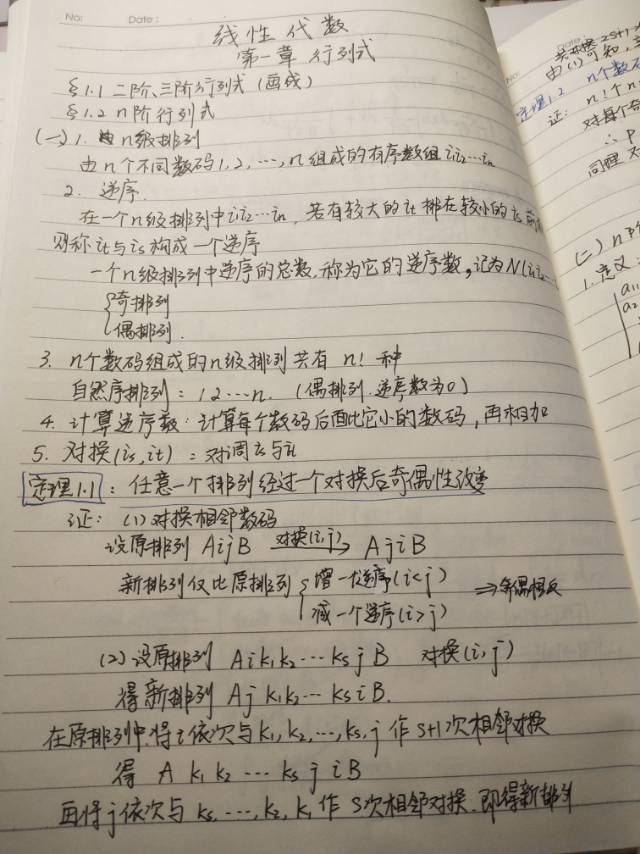 No: Date:
线性代数
第一章 行列式
§1.1 二阶、三阶行列式 (画成)
§1.2 n阶行列式
(一) 1. n级排列
由n个不同数码1,2,…,n组成的有序数组i₁i₂…iₙ
2. 逆序.
在一个n级排列中i₁i₂…iₙ, 若有较大的iₜ排在较小的iₛ前
则称iₜ与iₛ构成一个逆序
一个n级排列中逆序的总数,称为它的逆序数,记为N(i₁i₂…
{奇排列
偶排列.
3. n个数码组成的n级排列共有n!种
自然序排列: 12…n. (偶排列.逆序数为0)
4. 计算逆序数: 计算每个数码后面比它小的数码, 再相加
5. 对换(iₛ,iₜ): 对调iₛ与iₜ
定理1.1: 任意一个排列经过一个对换后奇偶性改变
证: (1) 对换相邻数码
设原排列 AijB 对换(i,j)→ AjiB
新排列仅比原排列 {增一个逆序(i<j)
减一个逆序(i>j) ⇒奇偶相反
(2) 设原排列 Aik₁k₂…kₛjB 对换(i,j)
得新排列 Ajk₁k₂…kₛiB.
在原排列中,将i依次与k₁,k₂,…,kₛ,j作s+1次相邻对换
得 Ak₁k₂…kₛjiB
再将j依次与kₛ,…,k₂,k₁作s次相邻对换.即得新排列
Date:
由(1)可知,
定理1.2 n个数码
证: n!个n
对每个奇
∴ P
同理 对
(二) n阶
1. 定义:
a₁₁
a₂